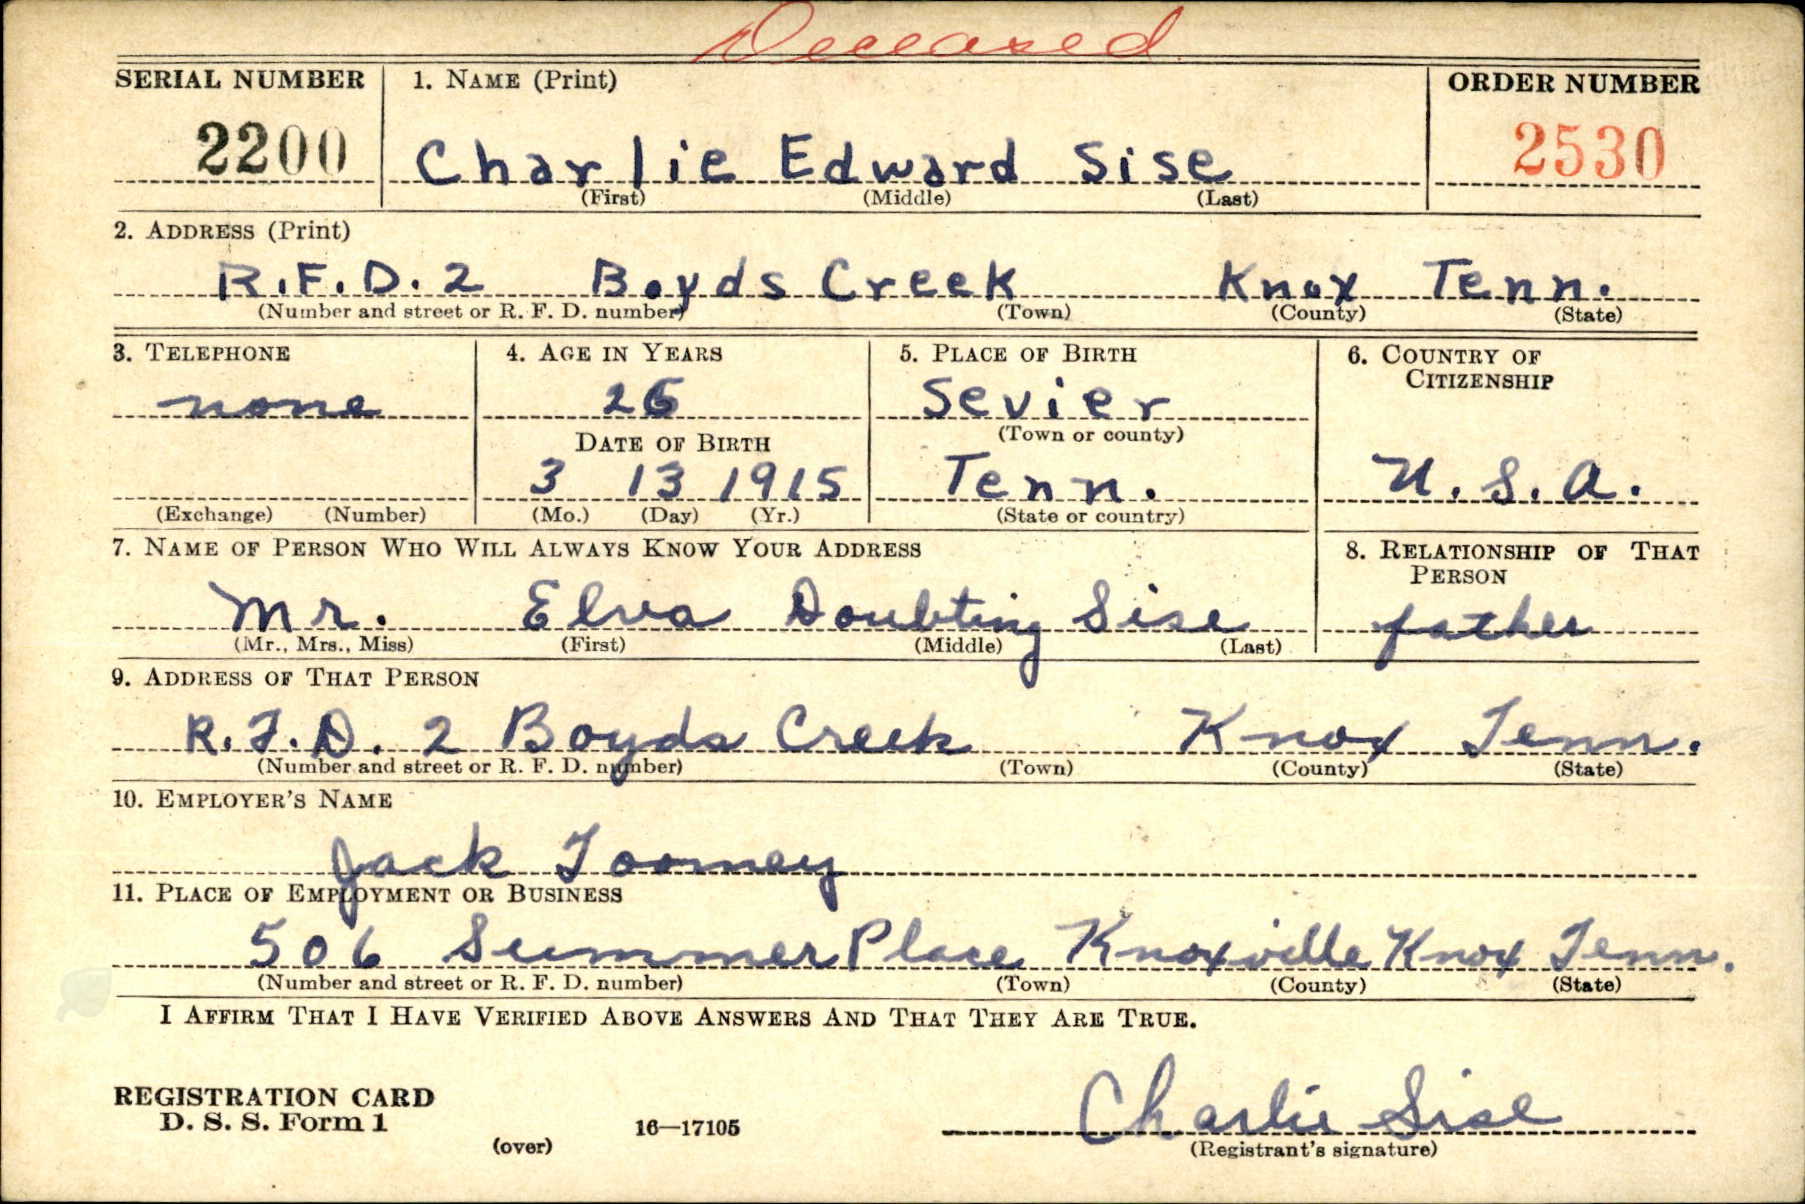 Deceased
SERIAL NUMBER 1. NAME (Print) ORDER NUMBER
2200 Charlie Edward Sise 2530
(First) (Middle) (Last)
2. ADDRESS (Print)
R.F.D. 2 Boyds Creek Knox Tenn.
(Number and street or R. F. D. number) (Town) (County) (State)
3. TELEPHONE 4. AGE IN YEARS 5. PLACE OF BIRTH 6. COUNTRY OF
CITIZENSHIP
none 26 Sevier
DATE OF BIRTH (Town or county)
3 13 1915 Tenn. U.S.A.
(Exchange) (Number) (Mo.) (Day) (Yr.) (State or country)
7. NAME OF PERSON WHO WILL ALWAYS KNOW YOUR ADDRESS 8. RELATIONSHIP OF THAT
PERSON
Mr. Elva Doubting Sise father
(Mr., Mrs., Miss) (First) (Middle) (Last)
9. ADDRESS OF THAT PERSON
R.F.D. 2 Boyds Creek Knox Tenn.
(Number and street or R. F. D. number) (Town) (County) (State)
10. EMPLOYER'S NAME
Jack Toomey
11. PLACE OF EMPLOYMENT OR BUSINESS
506 Summer Place Knoxville Knox Tenn.
(Number and street or R. F. D. number) (Town) (County) (State)
I AFFIRM THAT I HAVE VERIFIED ABOVE ANSWERS AND THAT THEY ARE TRUE.
Charlie Sise
REGISTRATION CARD
D. S. S. Form 1 16—17105
(over) (Registrant's signature)